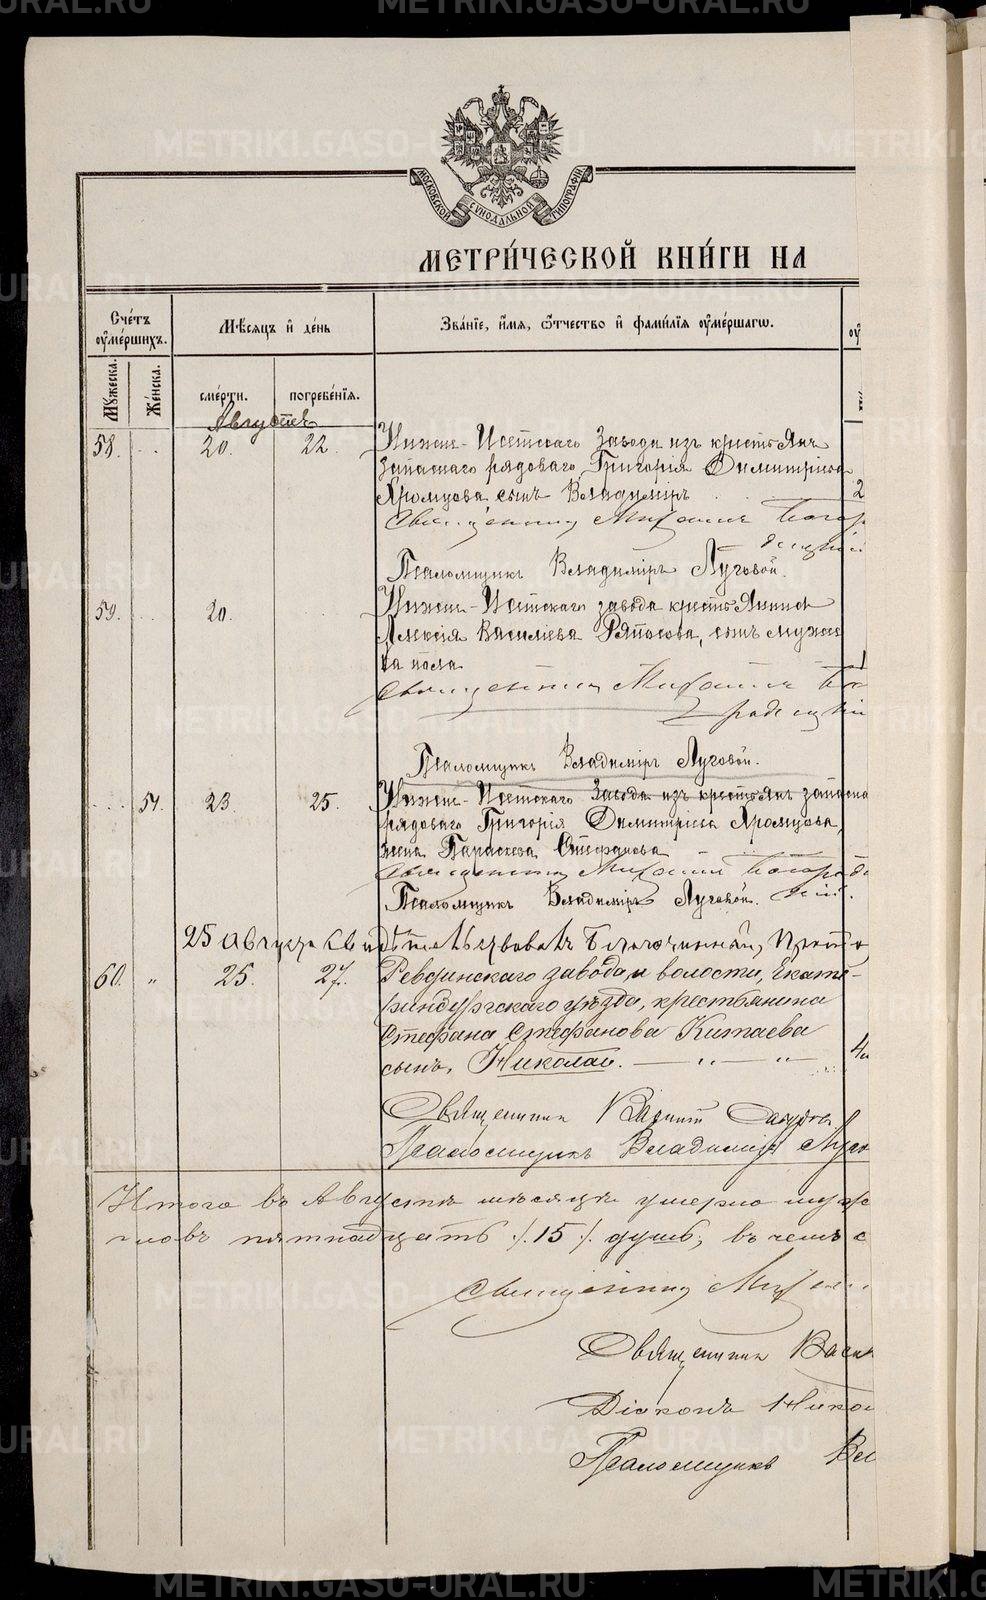 МОСКОВСКОЙ СУНОДАЛЬНОЙ ТИПОГРАФІИ
МЕТРИ́ЧЕСКОЙ КНИ́ГИ НА
Сче́тъ ᲂу҆ме́ршихъ.
Мѣ́сѧцъ и҆ де́нь
Зва́нїе, и҆́мѧ, ѻ҆́тчество и҆ фами́лїѧ ᲂу҆ме́ршагѡ.
Мꙋ́жеска.
Же́нска.
сме́рти.
погребе́нїѧ.
Августъ
58. 20. 22. Нижне-Исетскаго Завода изъ крестьянъ
запаснаго рядоваго Григорія Димитріева
Хромцова сынъ Владиміръ
2
Священникъ Михаилъ
Псаломщикъ Владиміръ Луговой.
59. 20. Нижне-Исетскаго завода крестьянина
Алексія Василіева Ряпосова, сынъ мужес
ка пола
1
Священникъ Михаилъ
Псаломщикъ Владиміръ Луговой.
54. 23. 25. Нижне-Исетскаго Завода изъ крестьянъ запасна
рядоваго Григорія Димитріева Хромцова,
жена Параскева Стефанова
Священникъ Михаилъ
Псаломщикъ Владиміръ Луговой.
25 Августа свидѣтельствовалъ Благочинный, Прото
60. " 25. 27. Ревдинскаго завода и волости, Екате-
ринбургскаго уѣзда, крестьянина
Стефана Стефанова Китаева
сынъ, Николай. — " — "
Священникъ
Псаломщикъ Владиміръ Луго
Итого въ Августѣ мѣсяцѣ умерло муж
пятнадцать /.15./ душъ, въ чемъ с
Священникъ Миха
Священникъ Васи
Діаконъ Нико
Псаломщикъ Вл
METRIKI.GASO-URAL.RU